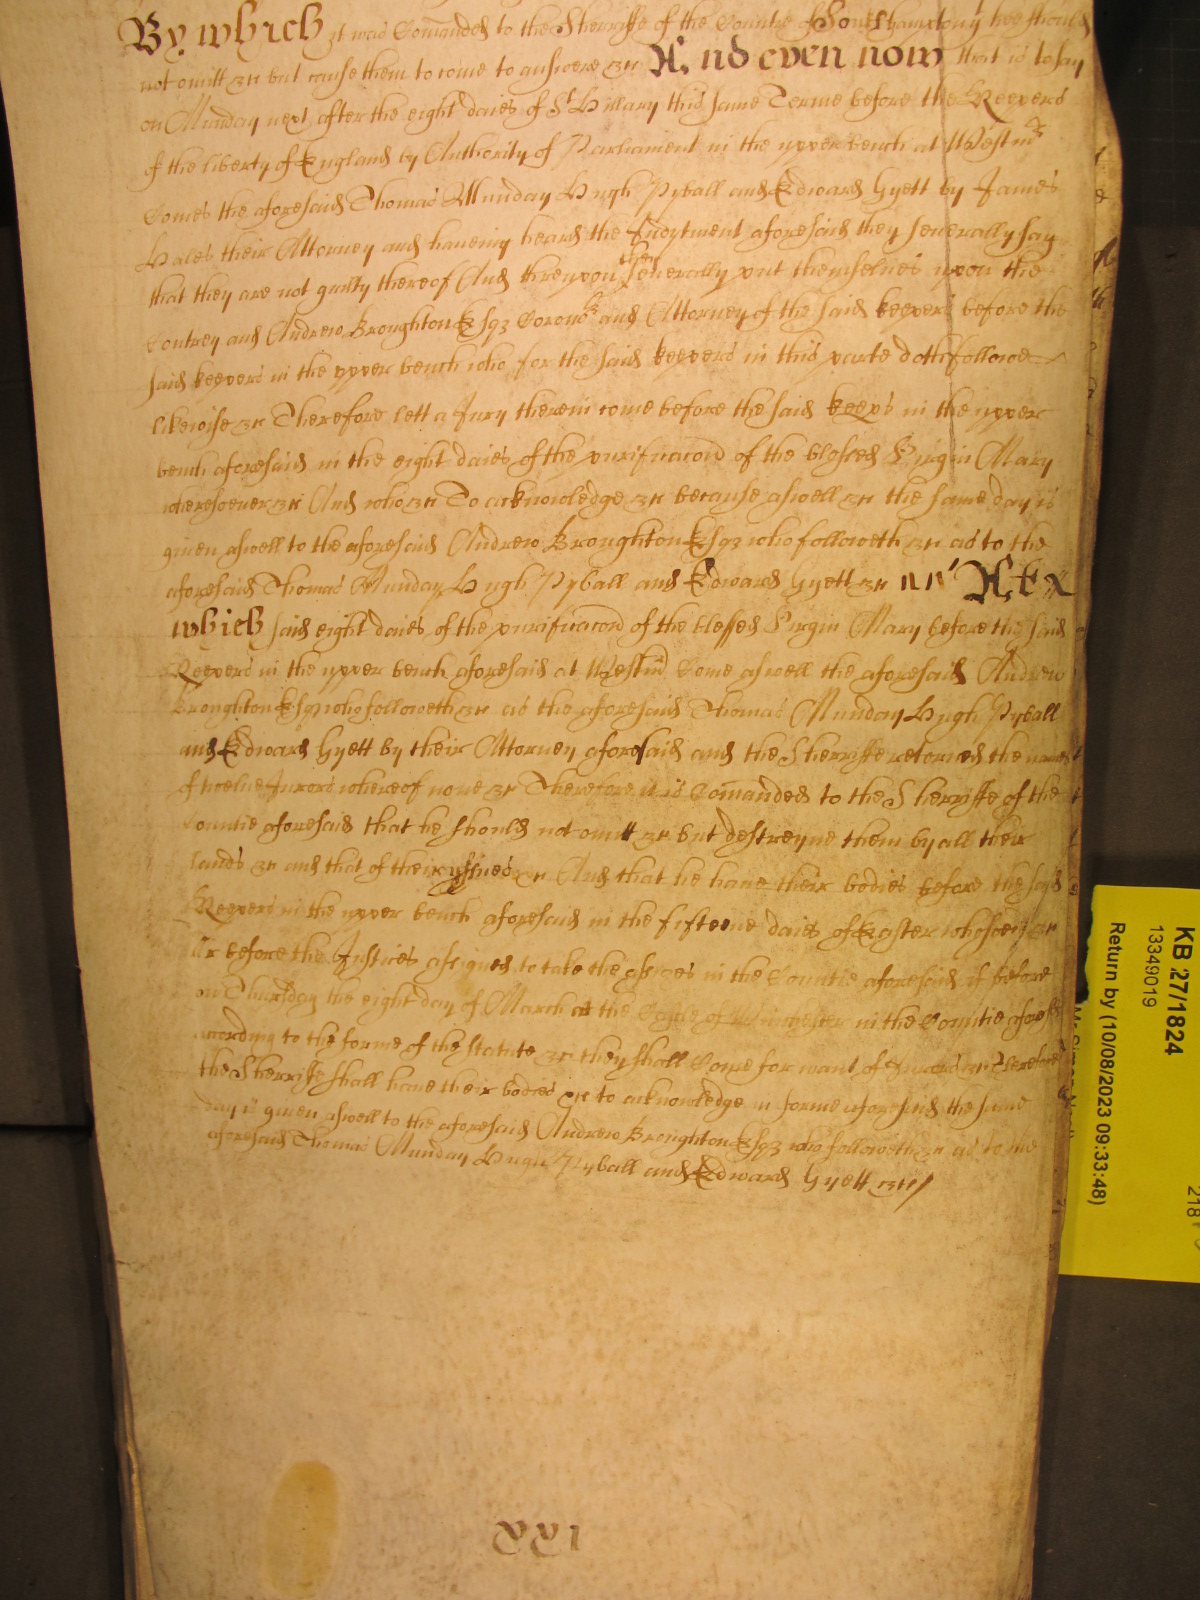 By which it was Comanded to the Sherriffe of the Countie of Southampton y^t hee should
not omitt &c but cause them to come to answere &c And even now that is to say
on Munday next after the eight daies of S^t Hillary this same Terme before the Keepers
of the liberty of England by Authority of Parliament in the upper bench at Westm^r
Comes the aforesaid Thomas Munday Hugh Pyball and Edward Hyett by James
Hales their Attorney and haueing heard the Indytment aforesaid they seuerally say
that they are not guilty thereof And thereupon they seuerally put themselues upon the
Contrey and Andrew Broughton Esq3 Corono^r and Attorney of the said keepers before the
said keepers in the upper bench who for the said keepers in this parte doth followe
likewise &c Therefore lett a Jury therein come before the said keeps in the upper
bench aforesaid in the eight daies of the purificacon of the blessed Virgin Mary
wheresoeuer &c And who &c To acknowledge &c because aswell &c the same day is
giuen aswell to the aforesaid Andrew Broughton Esq3 who followeth &c as to the
aforesaid Thomas Munday Hugh Pyball and Edward Hyett &c At
which said eight daies of the purificacon of the blessed Virgin Mary before the said
Keepers in the upper bench aforesaid at Westm Come aswell the aforesaid Andrew
Broughton Esq3 who followeth &c as the aforesaid Thomas Munday Hugh Pyball
and Edward Hyett by their Attorney aforesaid and the Sherriffe retorned the names
of twelue Jurors whereof none &c Therefore it is Comanded to the Sherriffe of the
Countie aforesaid that he should not omitt &c but destreyne them by all their
landes &c and that of their yssues &c And that he haue their bodies before the said
Keepers in the upper bench aforesaid in the fifteene daies of Easter &c
Or before the Justices assigned to take the assizes in the Countie aforesaid if before
on Thursday the eight day of March at the Castle of Winchester in the Countie aforesaid
according to the forme of the statute &c they shall Come for want of Jurors &c Therefore
the Sherriffe shall haue their bodies &c to acknowledge in forme aforesaid the same
day is giuen aswell to the aforesaid Andrew Broughton Esq3 who followeth &c as to the
aforesaid Thomas Munday Hugh Pyball and Edward Hyett &c/
xxi
KB 27/1824
13349019
Return by (10/08/2023 09:33:48)